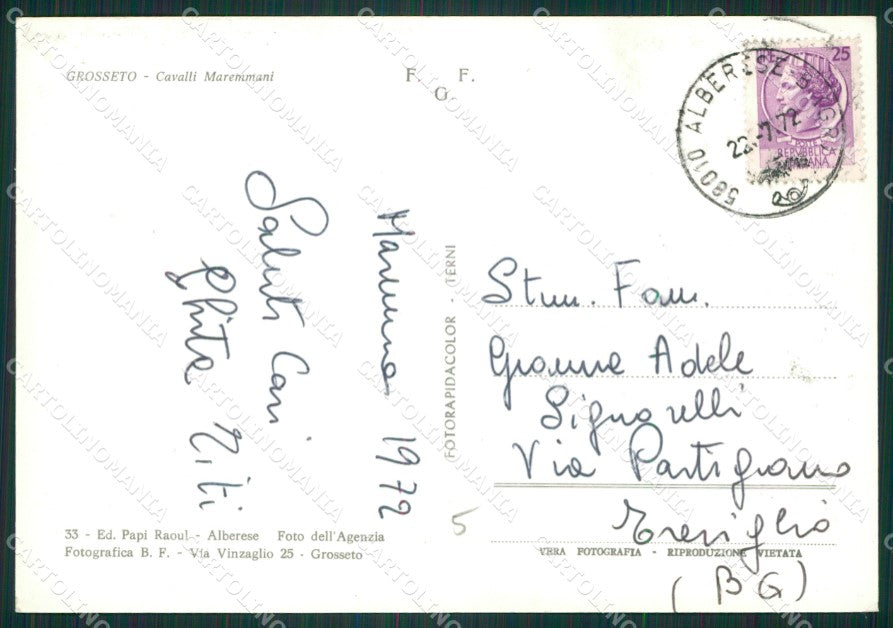 GROSSETO - Cavalli Maremmani
F. F.
G.
25
POSTE
REPUBBLICA
ITALIANA
58010 ALBERESE
22-7.72
Maremma 1972
Saluti Cari
Titi
FOTORAPIDACOLOR - TERNI
Stim. Fam.
Gianna Adele
Signorelli
Via Partigiano
Treviglio
(BG)
5
33 - Ed. Papi Raoul - Alberese Foto dell'Agenzia
Fotografica B. F. - Via Vinzaglio 25 - Grosseto
VERA FOTOGRAFIA - RIPRODUZIONE VIETATA
CARTOLINOMANIA